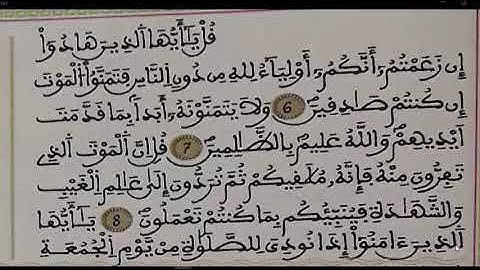 قُلْ يَٰٓأَيُّهَا اَلذِينَ هَادُوٓاْ
إِن زَعَمْتُمُۥٓ أَنَّكُمُۥٓ أَوْلِيَآءُ لِلهِ مِن دُونِ اِلنَّاسِ فَتَمَنَّوُاْ اُلْمَوْتَ
إِن كُنتُمْ صَٰدِقِينَ 6 وَلَا يَتَمَنَّوْنَهُۥٓ أَبَداَۢ بِمَا قَدَّمَتَ
اَيْدِيهِمْ وَاللَّهُ عَلِيمُۢ بِالظَّٰلِمِينَ 7 قُلِ اِنَّ اَلْمَوْتَ اَلذِے
تَفِرُّونَ مِنْهُ فَإِنَّهُۥ مُلَٰقِيكُمْ ثُمَّ تُرَدُّونَ إِلَىٰ عَٰلِمِ اِلْغَيْبِ
وَالشَّهَٰدَةِ فَيُنَبِّئُكُم بِمَا كُنتُمْ تَعْمَلُونَ 8 يَٰٓأَيُّهَا
اَلذِينَ ءَامَنُوٓاْ إِذَا نُودِيَ لِلصَّلَوٰةِ مِنْ يَّوْمِ اِلْجُمُعَةِ